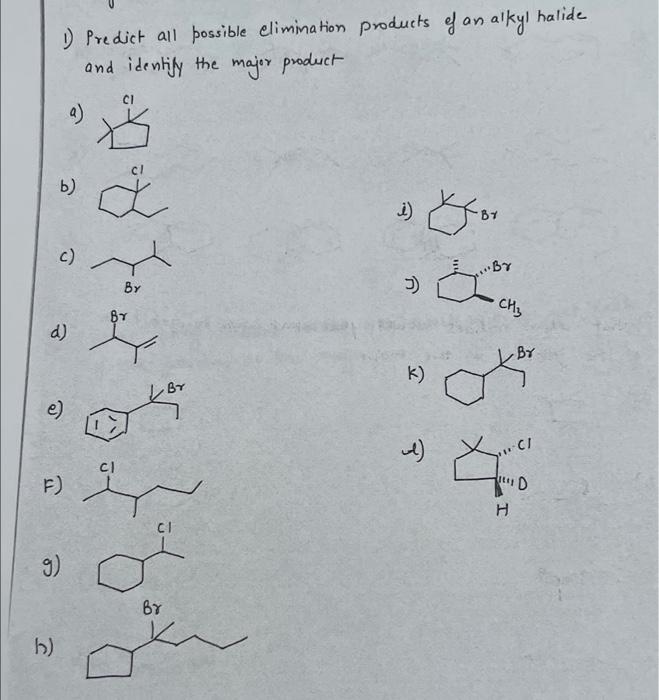 1) Predict all possible elimination products of an alkyl halide
and identify the major product
a)
Cl
b)
Cl
c)
Br
d)
Br
e)
Br
F)
Cl
g)
Cl
h)
Br
i)
Br
J)
Br
CH3
K)
Br
l)
Cl
D
H